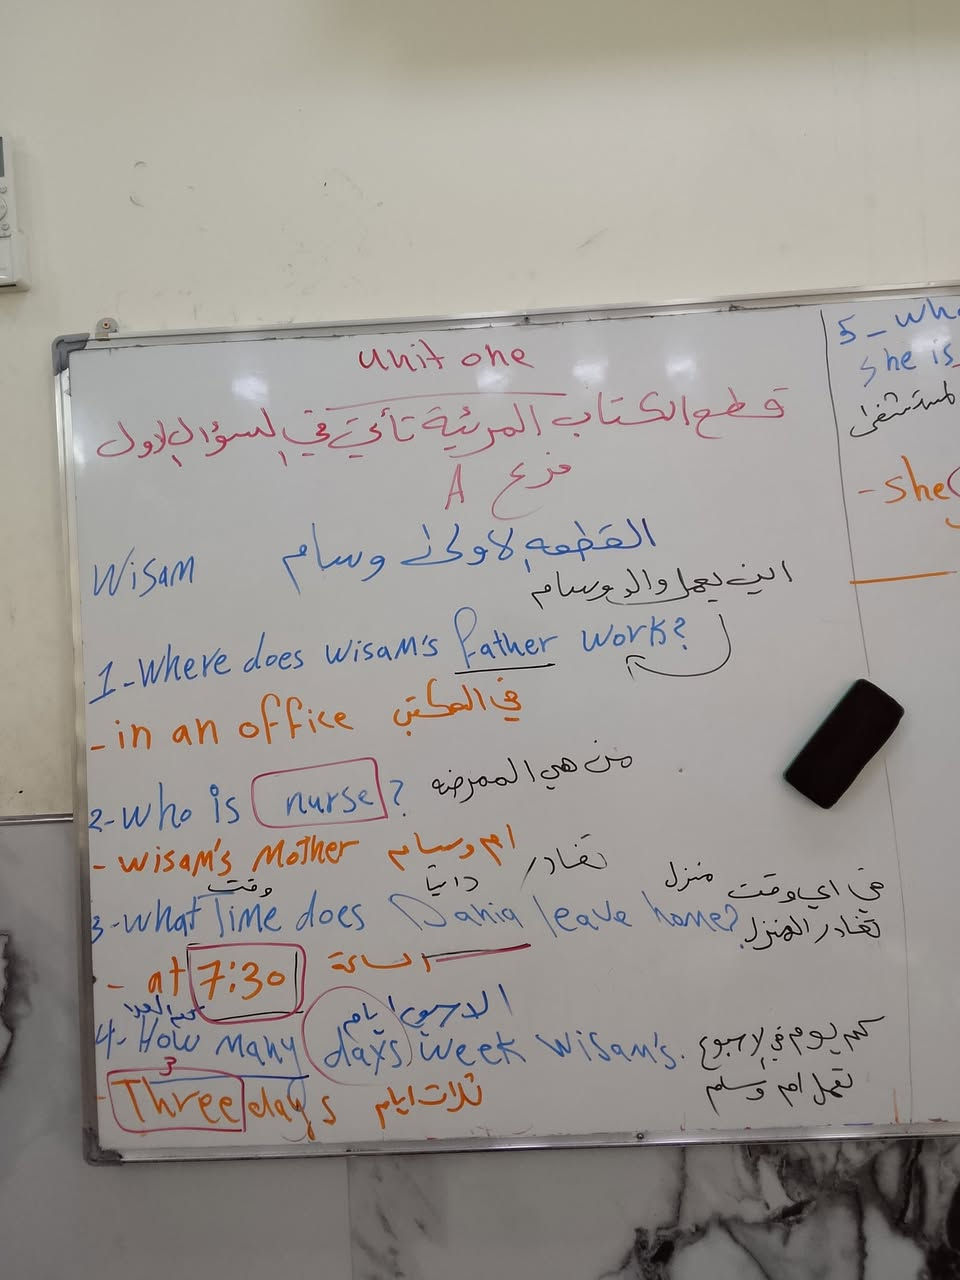 unit one
قطع الكتاب المرئية تأتي في السؤال الاول
فرع A
Wisam القطعه الاولى وسام
اين يعمل والد وسام
1-Where does Wisam's father work?
- in an office في المكتب
2-who is nurse? من هي الممرضه
- wisam's Mother ام وسام
وقت دانيا تغادر منزل في اي وقت
3-what Time does Dania leave home? تغادر المنزل
- at 7:30 الساعة
كم العدد ايام الاسبوع
4-How many days week Wisam's. كم يوم في الاسبوع
3
- Three days ثلاث ايام تعمل ام وسام
5-
she is
- she